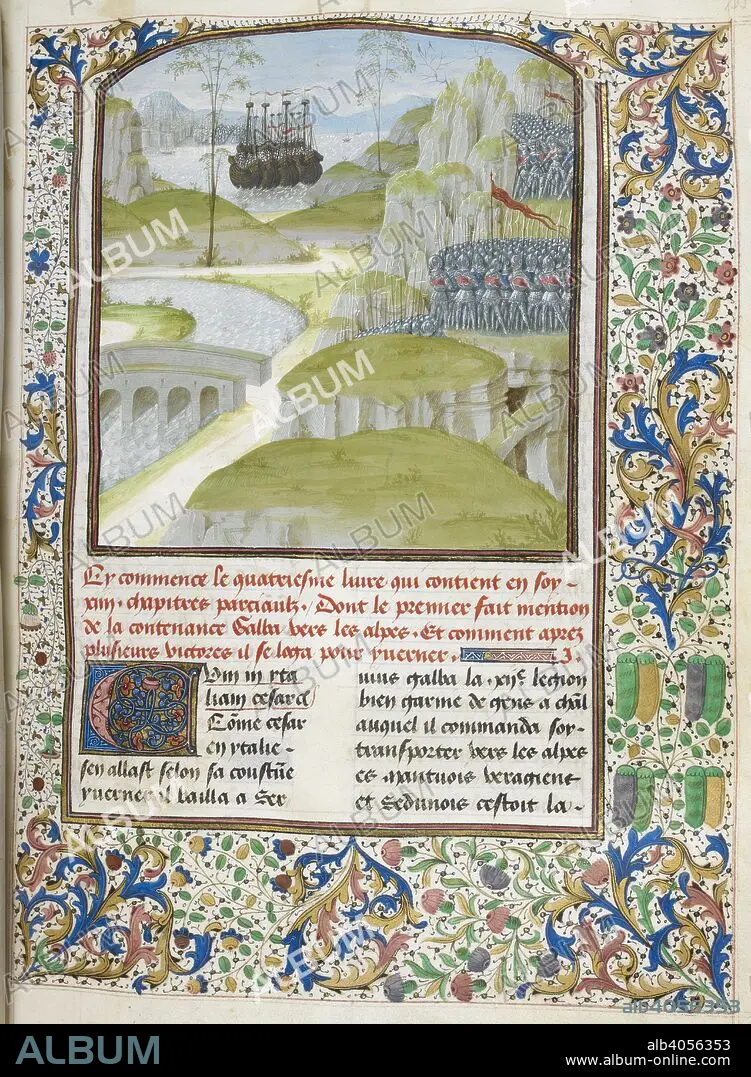 Cy commence le quatriesme livre qui contient en soy -
xiiij. chapitres parciaulz. Dont le premier fait mention
de la contenance Galba vers les alpes. Et comment aprez
plusieurs victores il se loga pour yverner. .J.
Cum in yta
liam cesar cͣ
Cōme cesar
en ytalie -
sen allast selon sa coustūe
yverner il bailla a Ser
vius galba la xijᵉ legion
bien garnie de gens a chāl
auquel il commanda soy -
transporter vers les alpes
es nantuois veragiens
et Sedunois cestoit la -
ALBUM
alb4056353
ALBUM
alb4056353
album-online.com